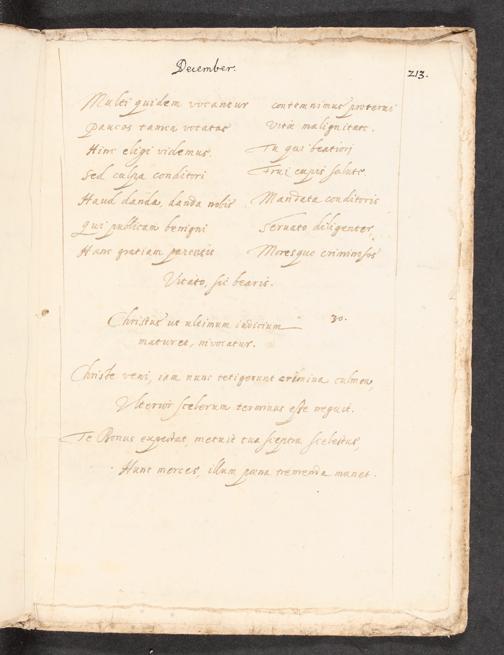 December.
213.
Multi quidem vocantur
Paucos tamen vocatos
Hinc eligi videmus.
Sed culpa conditori
Haud danda, danda nobis
Qui publicam benigni
Hanc gratiam parentis
contemnimus protervi
Vitæ malignitate.
Tu qui beatiori
Frui cupis salute
Mandata conditoris
Servato diligenter,
Moresque criminosos
Vitato, sic bearis.
Christus ut ultimum iudicium
maturet, invocatur.
30.
Christe veni, iam nunc tetigerunt crimina culmen,
Ulterior scelerum terminus esse nequit.
Te Bonus expectat, metuit tua sceptra scelestus,
Hunc merces, illum pœna tremenda manet.